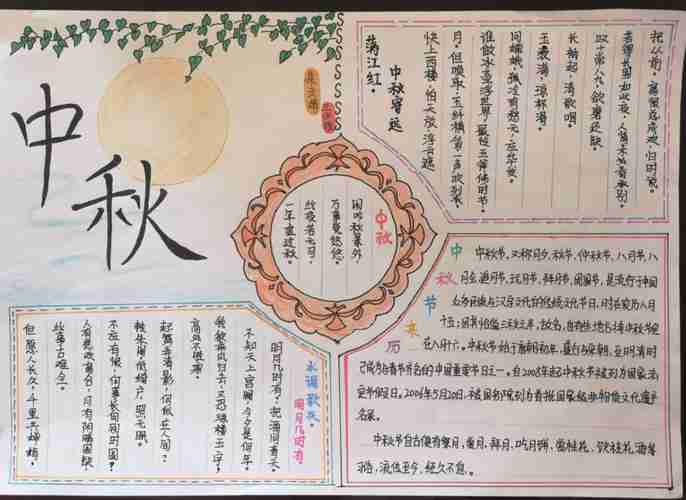 中秋
满江红。
中秋寄远
快上西楼，怕天放，浮云遮
月。但唤取，玉纤横管一声吹裂。
谁做冰壶浮世界，最怜玉斧修时节。
问嫦娥，孤冷有愁无，应华发。
玉液满，琼杯滑。
长袖起，清歌咽。
叹十常八九，欲磨还缺。
若得长圆如此夜，人情未必看承别。
把从前，离恨总成欢，归时说。
中秋
闲吟秋景外，
万事觉悠悠。
此夜若无月，
一年虚过秋。
水调歌头。
明月几时有
明月几时有，把酒问青天。
不知天上宫阙，今夕是何年。
我欲乘风归去，又恐琼楼玉宇，
高处不胜寒。
起舞弄清影，何似在人间？
转朱阁低绮户，照无眠。
不应有恨，何事长向别时圆？
人有悲欢离合，月有阴晴圆缺
此事古难全。
但愿人长久，千里共婵娟。
中秋节来历
中秋节，又称月夕、秋节、仲秋节、八月节、八
月会、追月节、玩月节、拜月节、团圆节，是流行于中国
众多民族与汉字文化圈的传统文化节日，时在农历八月
十五；因其恰值三秋之半，故名，也有些地方将中秋节定
在八月十六。中秋节始于唐朝初年，盛行与宋朝，至明清时
已成为与春节齐名的中国重要节日之一。自2008年起中秋节被列为国家法
定节假日。2006年5月20日，被国务院列为首批国家级非物质文化遗产
名录。
中秋节自古便有祭月、赏月、拜月、吃月饼、赏桂花、饮桂花酒等
习俗，流传至今，经久不息。